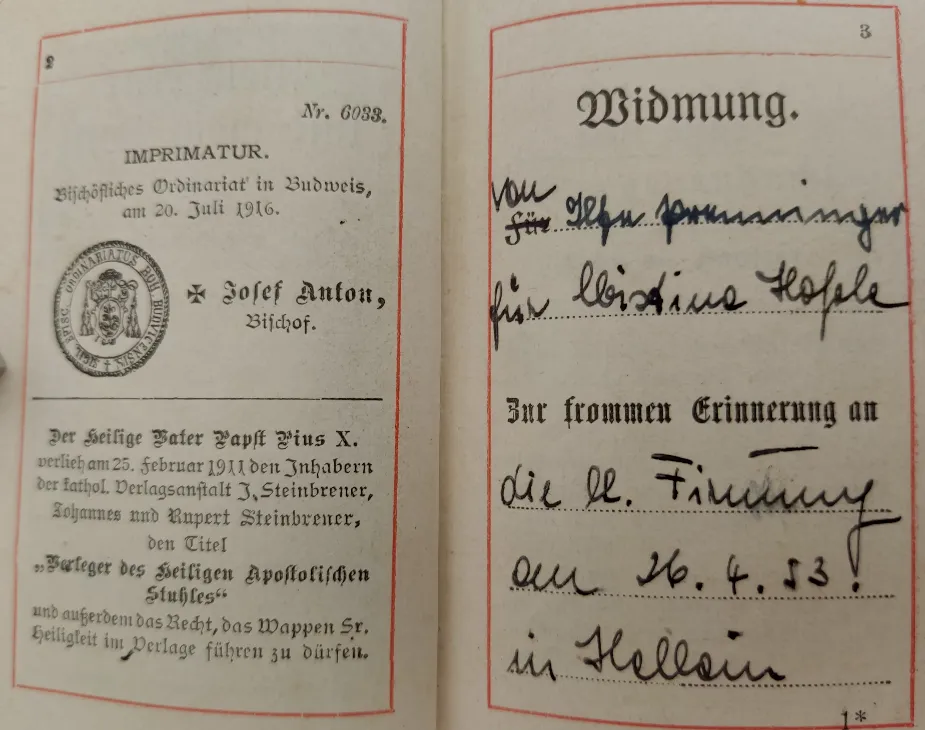 2
Nr. 6033.
IMPRIMATUR.
Bischöfliches Ordinariat in Budweis,
am 20. Juli 1916.
✠ Josef Anton,
Bischof.
Der Heilige Vater Papst Pius X.
verlieh am 25. Februar 1911 den Inhabern
der kathol. Verlagsanstalt J. Steinbrener,
Johannes und Rupert Steinbrener,
den Titel
„Verleger des Heiligen Apostolischen
Stuhles“
und außerdem das Recht, das Wappen Sr.
Heiligkeit im Verlage führen zu dürfen.
3
Widmung.
von
für Ilse Preminger
für
Zur frommen Erinnerung an
die hl. Firmung
am 26. 4. 53!
in Hallein
1*